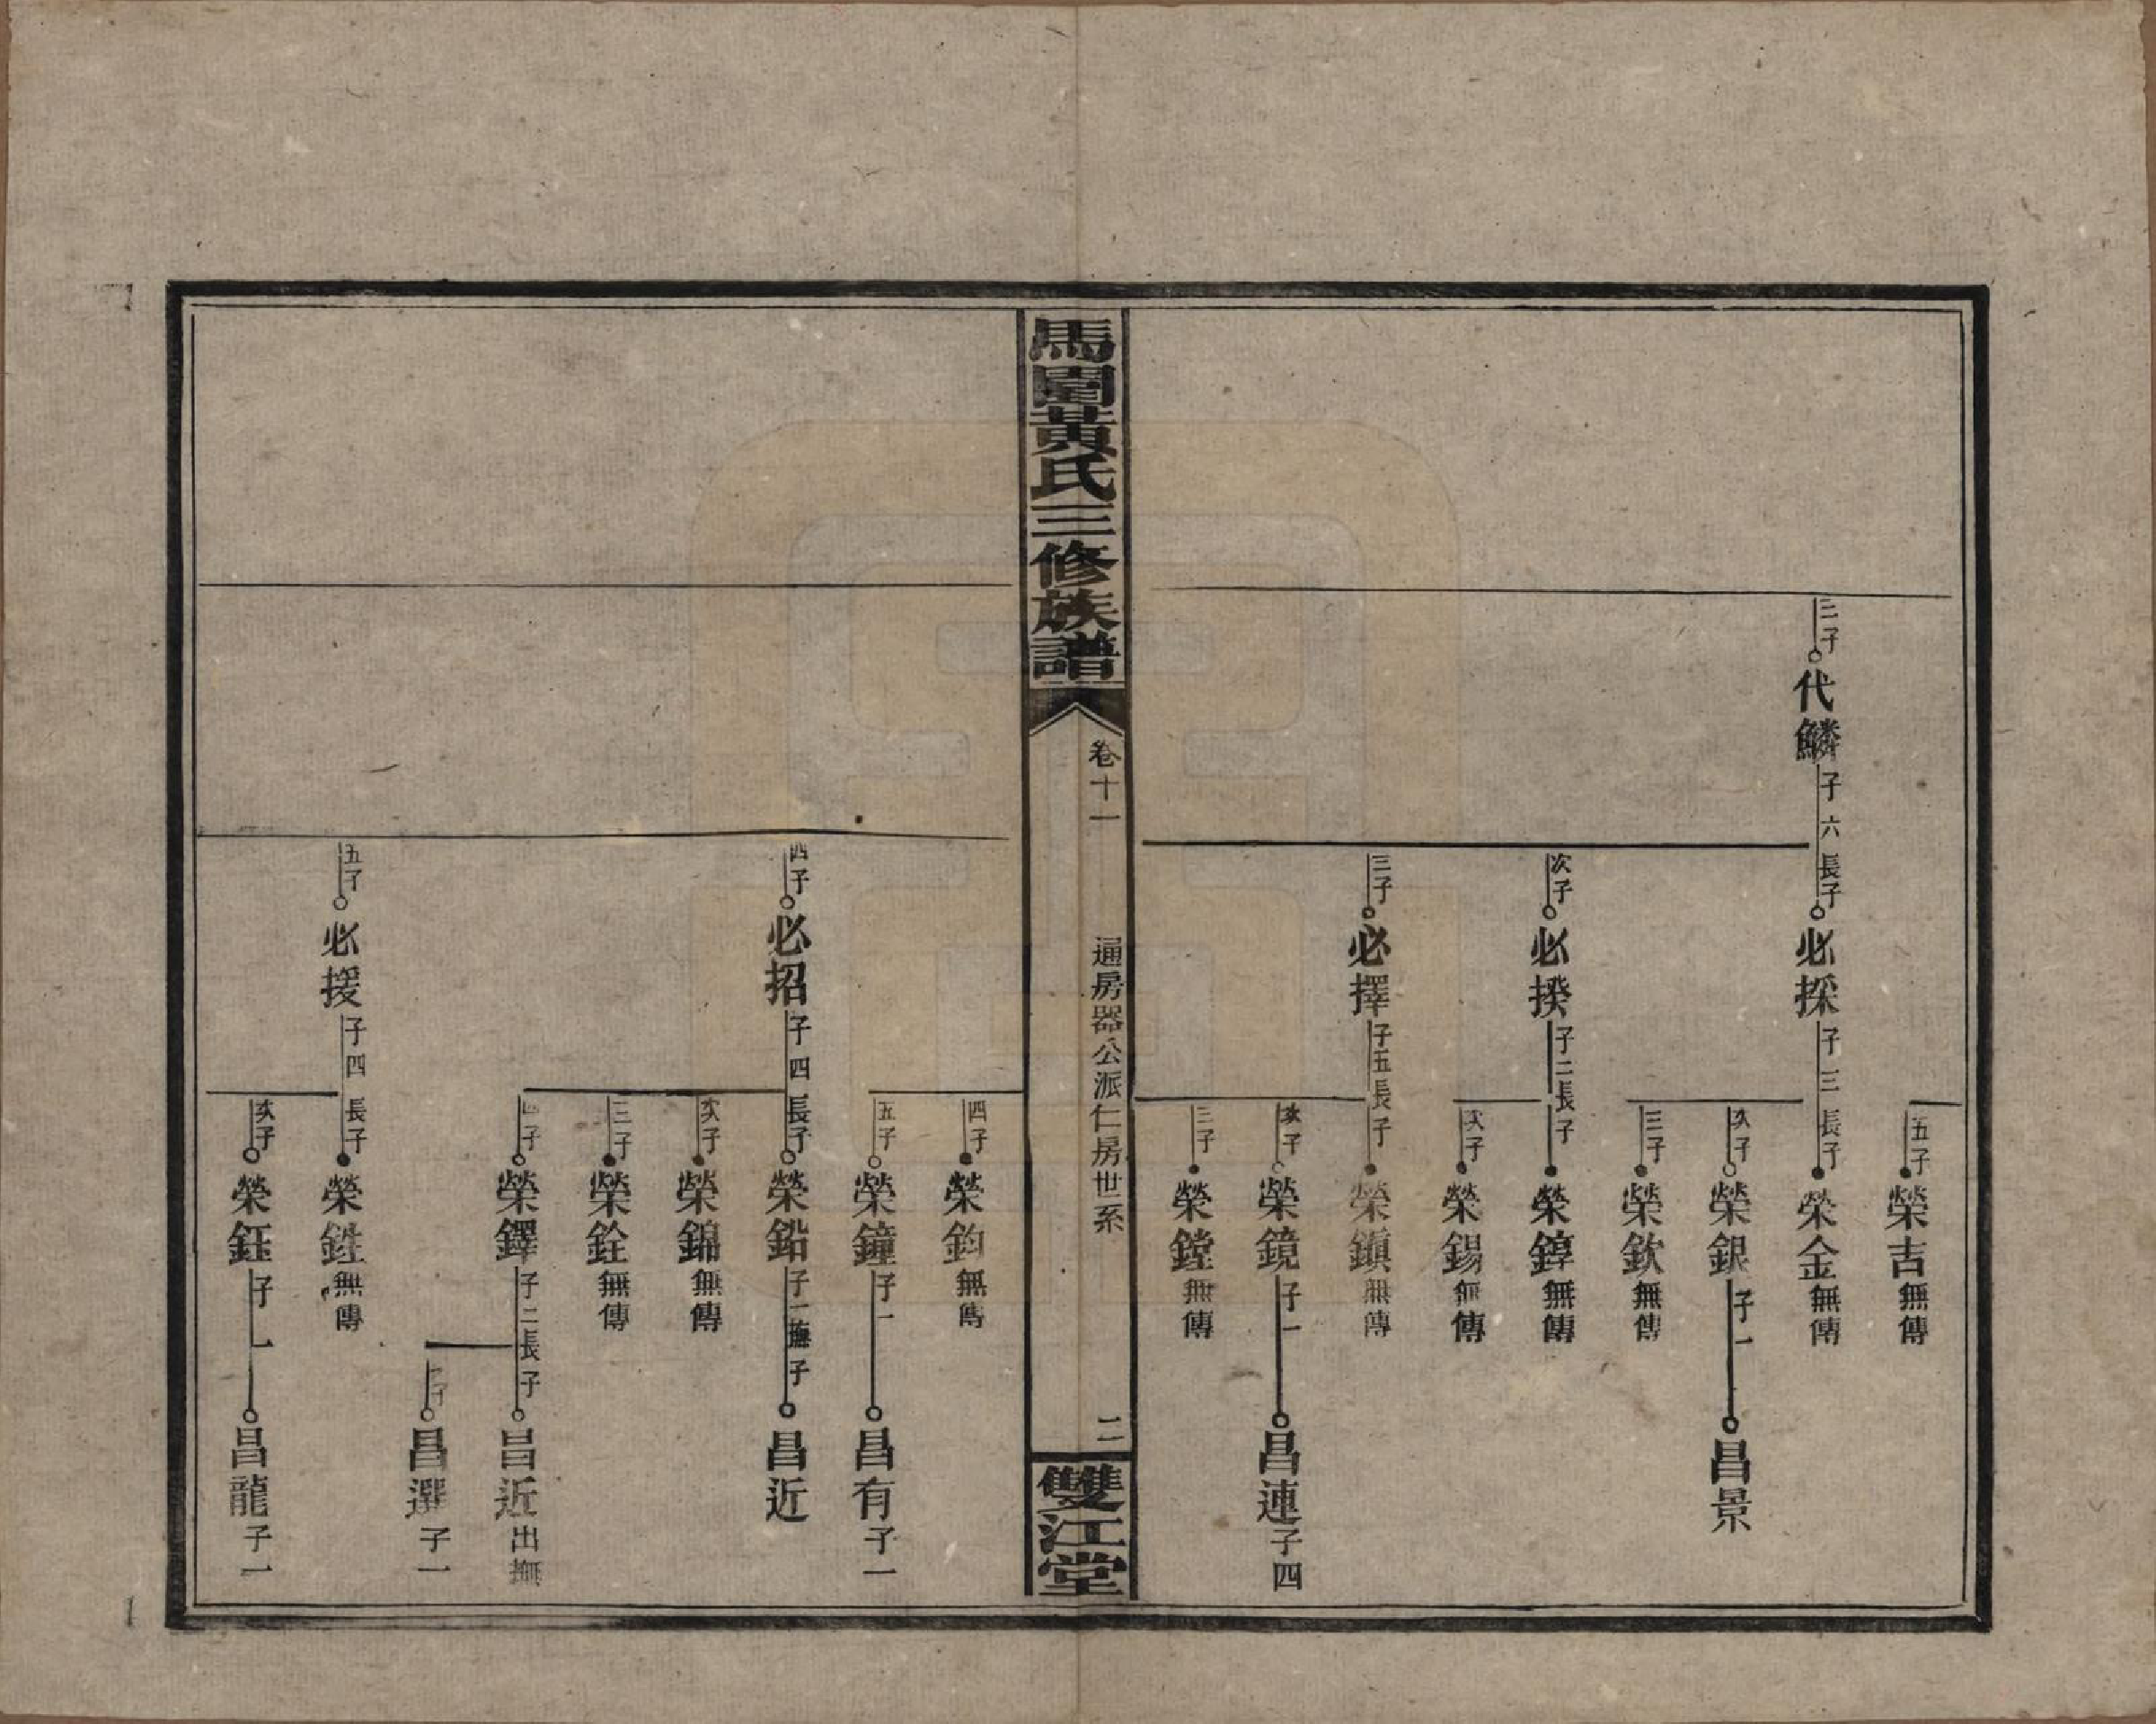 三子 代鱗 子六
長子 必採 子三
五子 榮吉 無傳
長子 榮金 無傳
次子 榮銀 子一
昌景
三子 榮欽 無傳
次子 必揆 子二
長子 榮錞 無傳
次子 榮錫 無傳
三子 必擇 子五
長子 榮鎮 無傳
次子 榮鏡 子一
昌連 子四
三子 榮鏜 無傳
馬園黃氏三修族譜
卷十一
通房器公派仁房世系
二
雙江堂
四子 榮鈞 無傳
五子 榮鐘 子一
昌有 子一
四子 必招 子四
長子 榮鉛 子一
撫子 昌近
次子 榮錦 無傳
三子 榮銓 無傳
四子 榮鐸 子二
長子 昌近 出撫
昌選 子一
五子 必援 子四
長子 榮 無傳
次子 榮鈺 子一
昌龍 子一